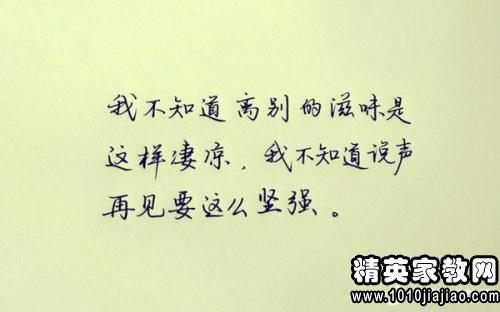 我不知道离别的滋味是
这样凄凉，我不知道说声
再见要这么坚强。
精英家教网
www.1010jiajiao.com